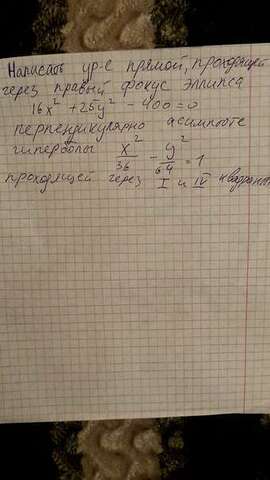 Написать ур-е прямой, проходящей
через правый фокус эллипса
16x² + 25y² - 400 = 0
перпендикулярно асимптоте
гиперболы x²/36 - y²/64 = 1
проходящей через I и IV квадранты